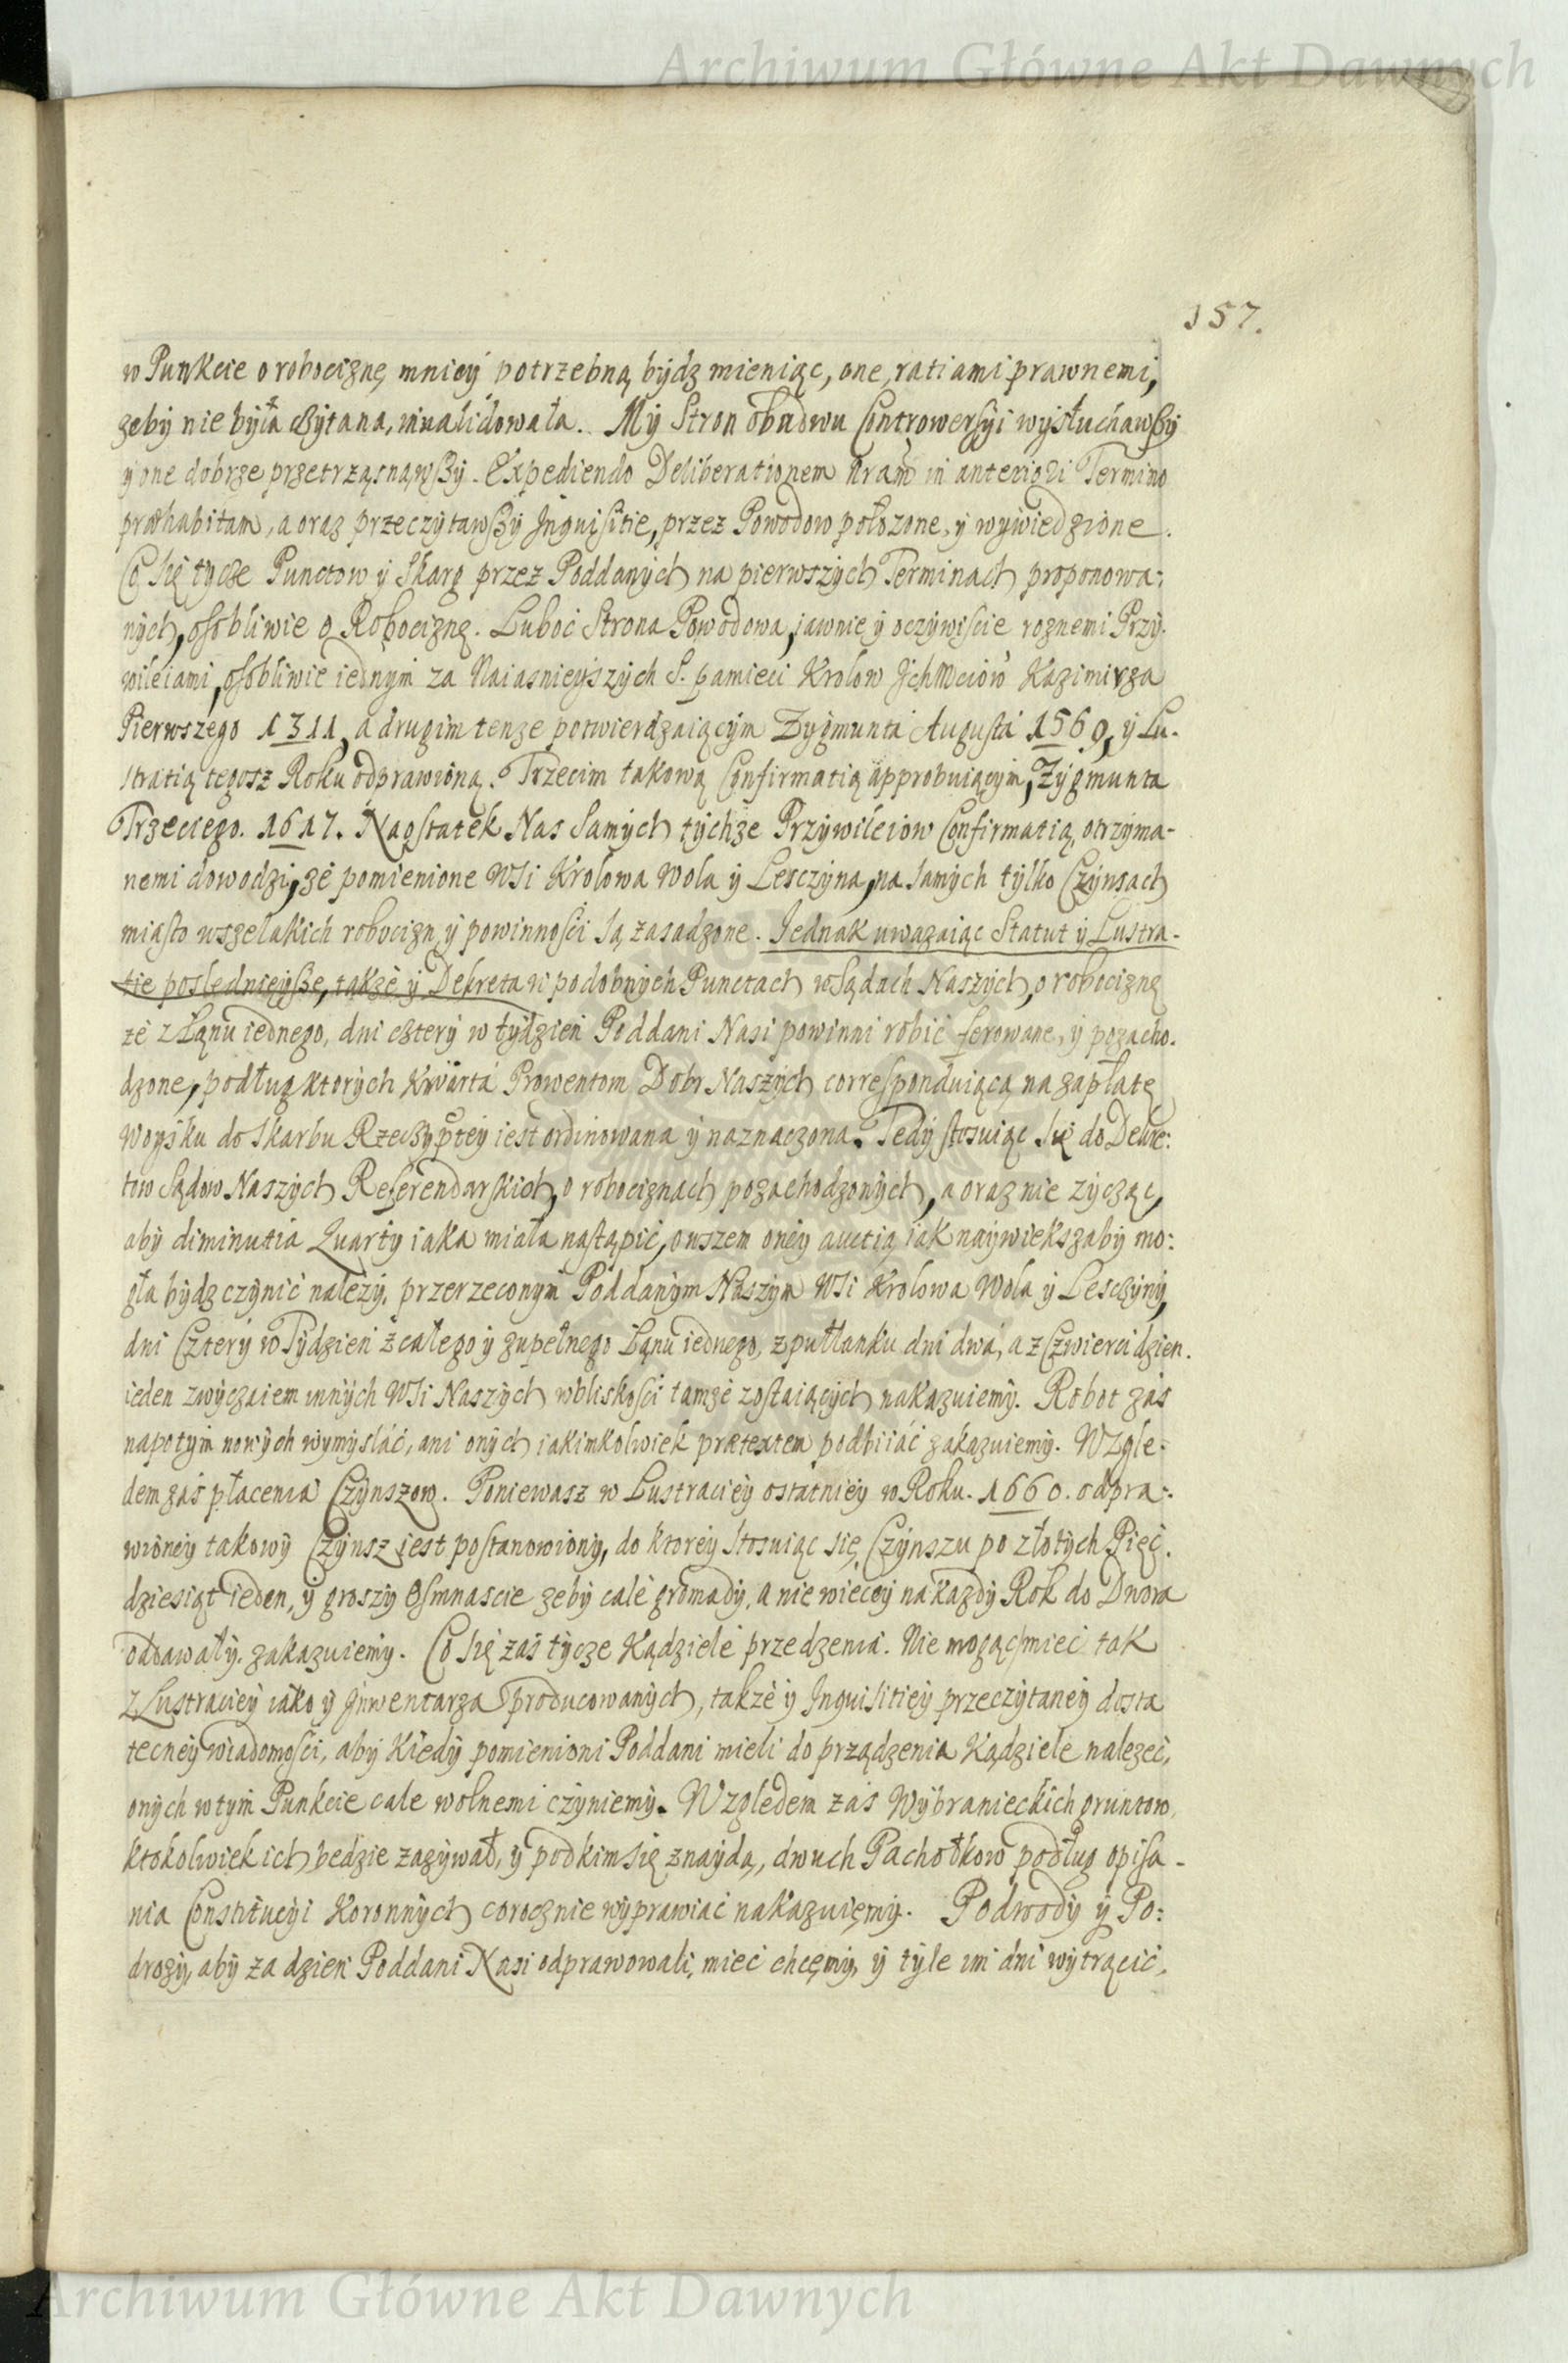 Archiwum Główne Akt Dawnych
157.
w Punkcie o robociznę mnieÿ potrzebną bÿdz mieniąc, one, ratiami prawnemi,
zebÿ nie bÿła czÿtana, inualidowała. Mÿ Stron obudwu Controwersÿi wÿsłuchawszÿ
ÿ one dobrze przetrząsnąwszÿ. Expediendo Deliberationem nram in anteriori Termino
præhabitam, a oraz przeczÿtawszÿ Inquisitie, przez Powodow położone, ÿ wÿwiedzione.
Co się tycze Punctow ÿ Skarg przez Poddanÿch na pierwszÿch Terminach proponowa:
nÿch, osobliwie o Robociznę. Luboć Strona Powodowa, jawnie ÿ oczÿwiscie roznemi Przÿ-
wileiami, osobliwie iednÿm za Naiasnieÿszÿch S. pamieci Krolow Jchmciow Kazimirza
Pierwszego 1311, a drugim tenze potwierdzaiącÿm Zÿgmunta Augusta 1560, ÿ Lu-
stratią tegosz Roku odprawioną. Trzecim takową Confirmatią approbuiącÿm, Zÿgmunta
Trzeciego. 1617. Naostatek Nas Samÿch tÿchze Przÿwileiow Confirmatią, otrzÿma-
nemi dowodzi, ze pomienione WSi Krolowa Wola ÿ Lesczÿna, na samÿch tÿlko Czÿnsach
miasto wszelakich robocizn, ÿ powinnosci są zasadzone. Jednak uwazaiąc Statut ÿ Lustra-
tie posledniejsze, takze ÿ Dekreta w podobnÿch Punctach w Sądach Naszÿch, o robociznę
ze z Łanu iednego, dni czterÿ w tÿdzien Poddani Nasi powinni robić ferowane, ÿ pozacho-
dzone, podług ktorÿch Kwarta Prowentom Dobr Naszÿch correspondÿiąca na zapłatę
Woÿsku do Skarbu Rzeczÿptej iest ordinowana ÿ naznaczona. Tedÿ stosuiąc się do Dekre:
tow Sądow Naszÿch Referendarskich, o robociznach pozachodzonÿch, a oraz nie zÿcząc,
abÿ diminutia Quartÿ iaka miała nastąpić, owszem oneÿ auctią iak naÿwiekszabÿ mo:
gła bÿdz czÿnić nalezÿ, przerzeconÿm Poddanÿm Naszÿm WSi Krolowa Wola ÿ Lesczÿnÿ,
dni Czterÿ w Tÿdzień z całego ÿ zupełnego Łanu iednego, z pułłanku dni dwa, a z Czwierci dzien
ieden zwÿczaiem innÿch WSi Naszÿch w bliskości tamze zostaiącÿch nakazuiemÿ. Robot zaś
napotÿm nowÿch wymyslać, ani onÿch iakimkolwiek prætextem podbiiać zakazuiemÿ. Wzgle-
dem zaś płacenia Czÿnszow. Poniewasz w Lustracieÿ ostatnieÿ w Roku. 1660. odpra:
wioneÿ takowÿ Czÿnsz iest postanowionÿ, do ktoreÿ stosuiąc się, Czÿnszu po złotÿch Pięć-
dziesiąt ieden, ÿ groszÿ Osmnascie zebÿ całe gromadÿ, a nie wieceÿ na kazdÿ Rok do Dwora
oddawałÿ, zakazuiemÿ. Co się zaś tÿcze Kądziele przedzenia. Nie mogąc mieć tak
z Lustracieÿ iako ÿ Jnwentarza producowanÿch, takze ÿ Inquisitieÿ przeczÿtaneÿ dosta
tecneÿ wiadomosci, abÿ kiedÿ pomienioni Poddani mieli do prządzenia Kądziele nalezec,
onÿch w tÿm Punkcie cale wolnemi czÿniemÿ. Względem zaś Wÿbranieckich gruntow,
ktokolwiek ich bedzie zazÿwał, ÿ pod kim się znaÿdą, dwuch Pachołkow podług opisa-
nia Constitucÿi Koronnÿch corocznie wÿprawiać nakazuiemÿ. Podwodÿ ÿ Po:
drozÿ, abÿ za dzien Poddani Nasi odprawowali, mieć chcemÿ, ÿ tÿle im dni wÿtrącić,
Archiwum Główne Akt Dawnych